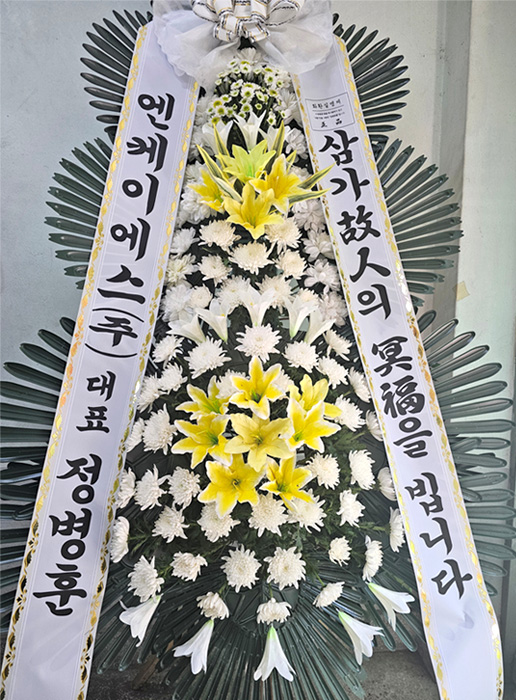 엔케이에스(주) 대표 정병훈
삼가 故人의 冥福을 빕니다
화환실명제